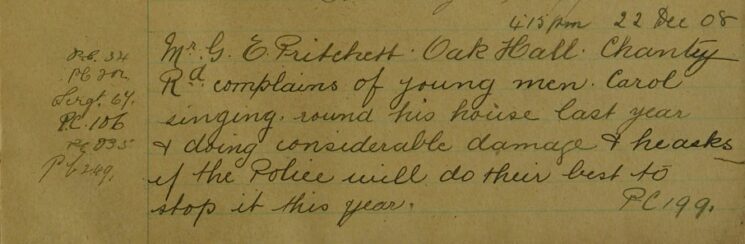 4.15 pm 22 Dec 08
P.C. 34
PC 202
Sergt. 67.
P.C. 106
PC 835
PC 249.
Mr. G. E. Pritchett. Oak Hall. Chantry
Rd complains of young men. Carol
singing. round his house last year
& doing considerable damage & he asks
if the Police will do their best to
stop it this year. PC 199.